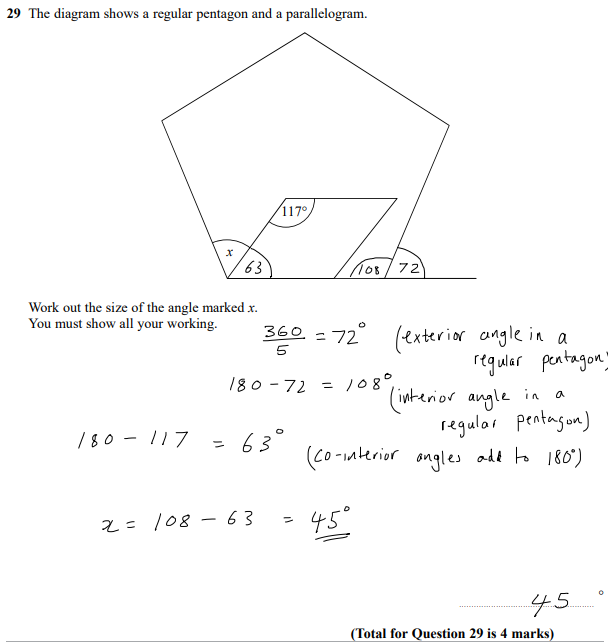 29 The diagram shows a regular pentagon and a parallelogram.
117°
x
63
108 72
Work out the size of the angle marked x.
You must show all your working.
360/5 = 72° (exterior angle in a
regular pentagon)
180 - 72 = 108° (interior angle in a
regular pentagon)
180 - 117 = 63°
(co-interior angles add to 180°)
x = 108 - 63 = 45°
45 °
(Total for Question 29 is 4 marks)